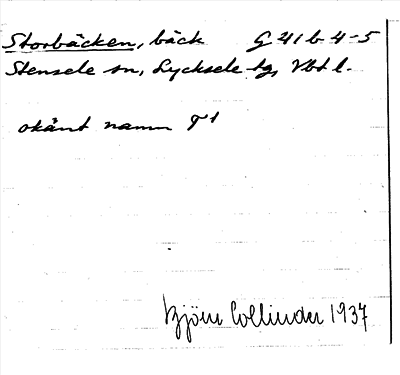 Storbäcken, bäck G 41 b 4-5
Stensele sn, Lycksele tg, Vbtl.
okänt namn T1
Björn Collinder 1937